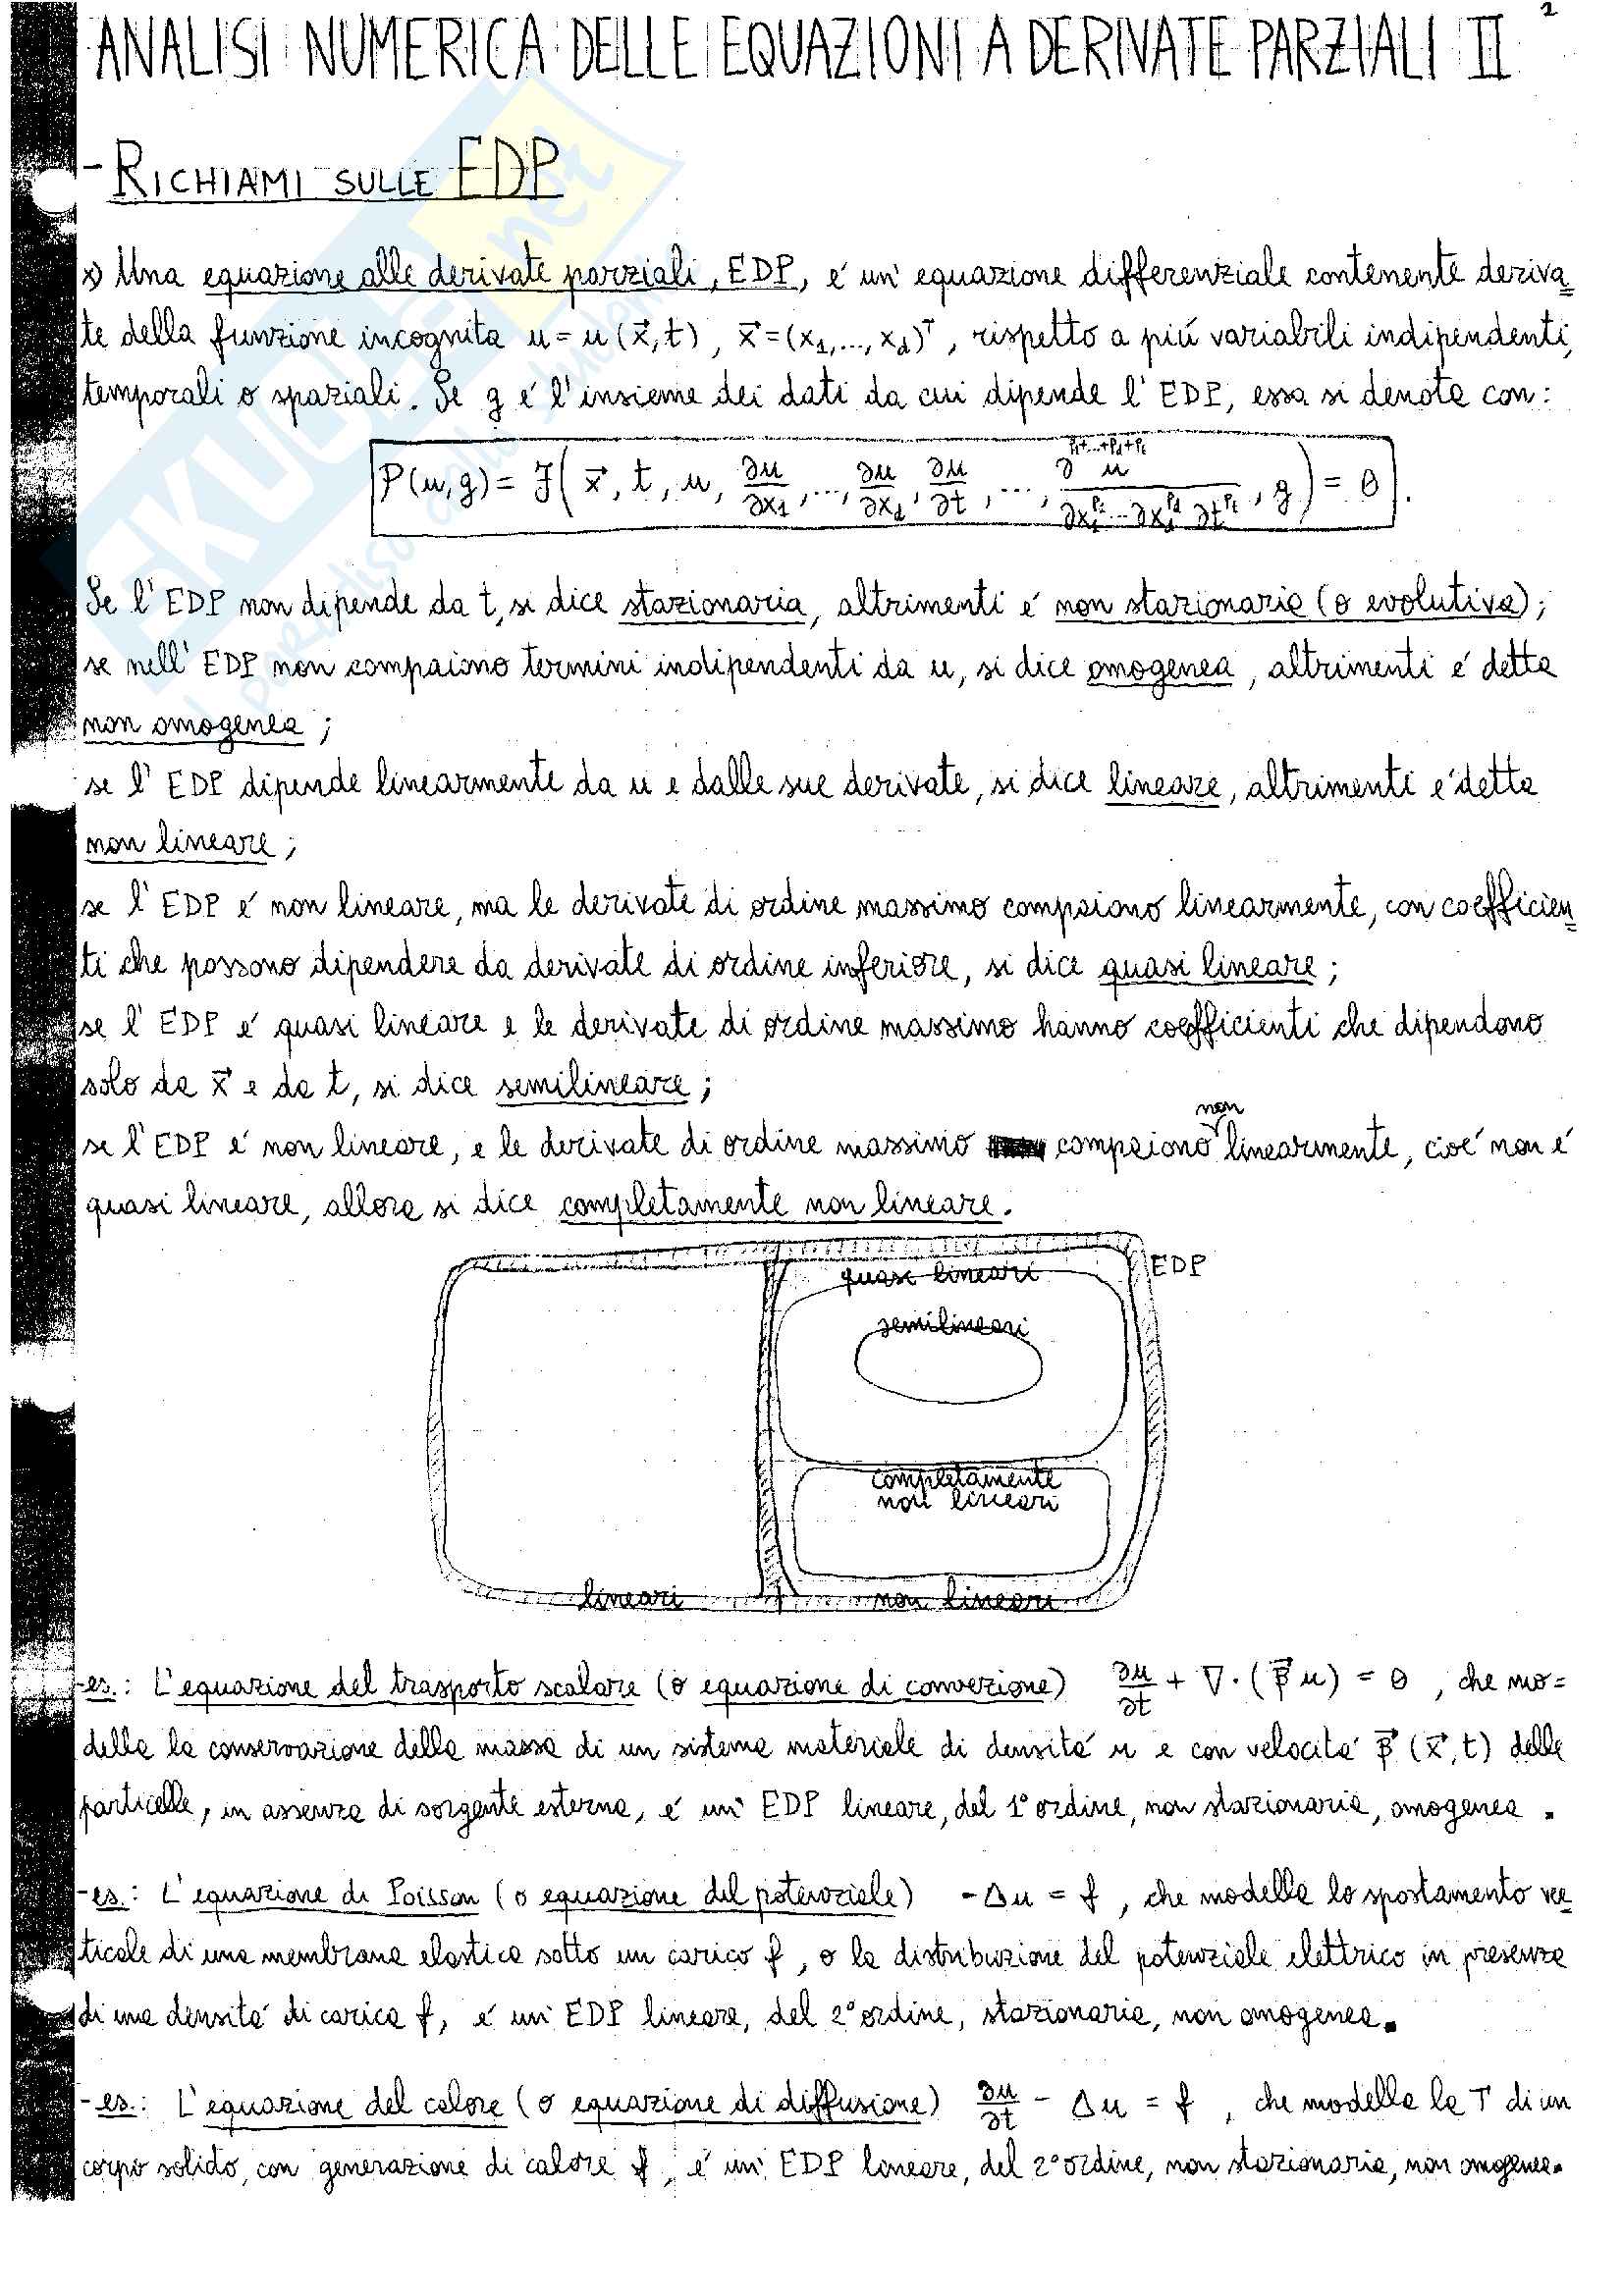 1
ANALISI NUMERICA DELLE EQUAZIONI A DERIVATE PARZIALI II
- RICHIAMI SULLE EDP
x) Una equazione alle derivate parziali, EDP, é un' equazione differenziale contenente deriva
te della funzione incognita u = u(x⃗, t), x⃗ = (x₁, ..., x_d)ᵀ, rispetto a piú variabili indipendenti,
temporali o spaziali. Se g é l'insieme dei dati da cui dipende l' EDP, essa si denota con:
P(u,g) = F( x⃗, t, u, ∂u/∂x₁, ..., ∂u/∂x_d, ∂u/∂t, ..., ∂^(p₁+...+p_d+p_t) u / ∂x₁^p₁ ... ∂x_d^p_d ∂t^p_t , g ) = 0.
Se l' EDP non dipende da t, si dice stazionaria, altrimenti é non stazionaria (o evolutiva);
se nell' EDP non compaiono termini indipendenti da u, si dice omogenea, altrimenti é detta
non omogenea;
se l' EDP dipende linearmente da u e dalle sue derivate, si dice lineare, altrimenti é detta
non lineare;
se l' EDP é non lineare, ma le derivate di ordine massimo compaiono linearmente, con coefficien
ti che possono dipendere da derivate di ordine inferiore, si dice quasi lineare;
se l' EDP é quasi lineare e le derivate di ordine massimo hanno coefficienti che dipendono
solo da x⃗ e da t, si dice semilineare;
se l' EDP é non lineare, e le derivate di ordine massimo compaiono non linearmente, cioé non é
quasi lineare, allora si dice completamente non lineare.
EDP
quasi lineari
semilineari
completamente
non lineari
lineari
non lineari
- es.: L'equazione del trasporto scalare (o equazione di convezione) ∂u/∂t + ∇·(β⃗ u) = 0, che mo=
della la conservazione della massa di un sistema materiale di densitá u e con velocitá β⃗(x⃗, t) delle
particelle, in assenza di sorgente esterna, é un' EDP lineare, del 1° ordine, non stazionaria, omogenea.
- es.: L'equazione di Poisson (o equazione del potenziale) -Δu = f, che modella lo spostamento ver
ticale di una membrana elastica sotto un carico f, o la distribuzione del potenziale elettrico in presenza
di una densitá di carica f, é un' EDP lineare, del 2° ordine, stazionaria, non omogenea.
- es.: L'equazione del calore (o equazione di diffusione) ∂u/∂t - Δu = f, che modella la T di un
corpo solido, con generazione di calore f, é un' EDP lineare, del 2° ordine, non stazionaria, non omogenea.